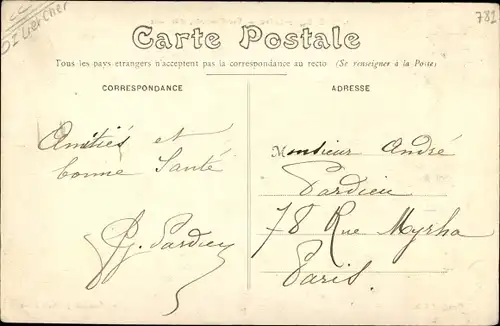 782
Carte Postale
Tous les pays etrangers n'acceptent pas la correspondance au recto (Se renseigner à la Poste)
CORRESPONDANCE
Amitiés et
bonne Santé
P. Pardieu
ADRESSE
Monsieur André
Pardieu
78 Rue Myrha
Paris.